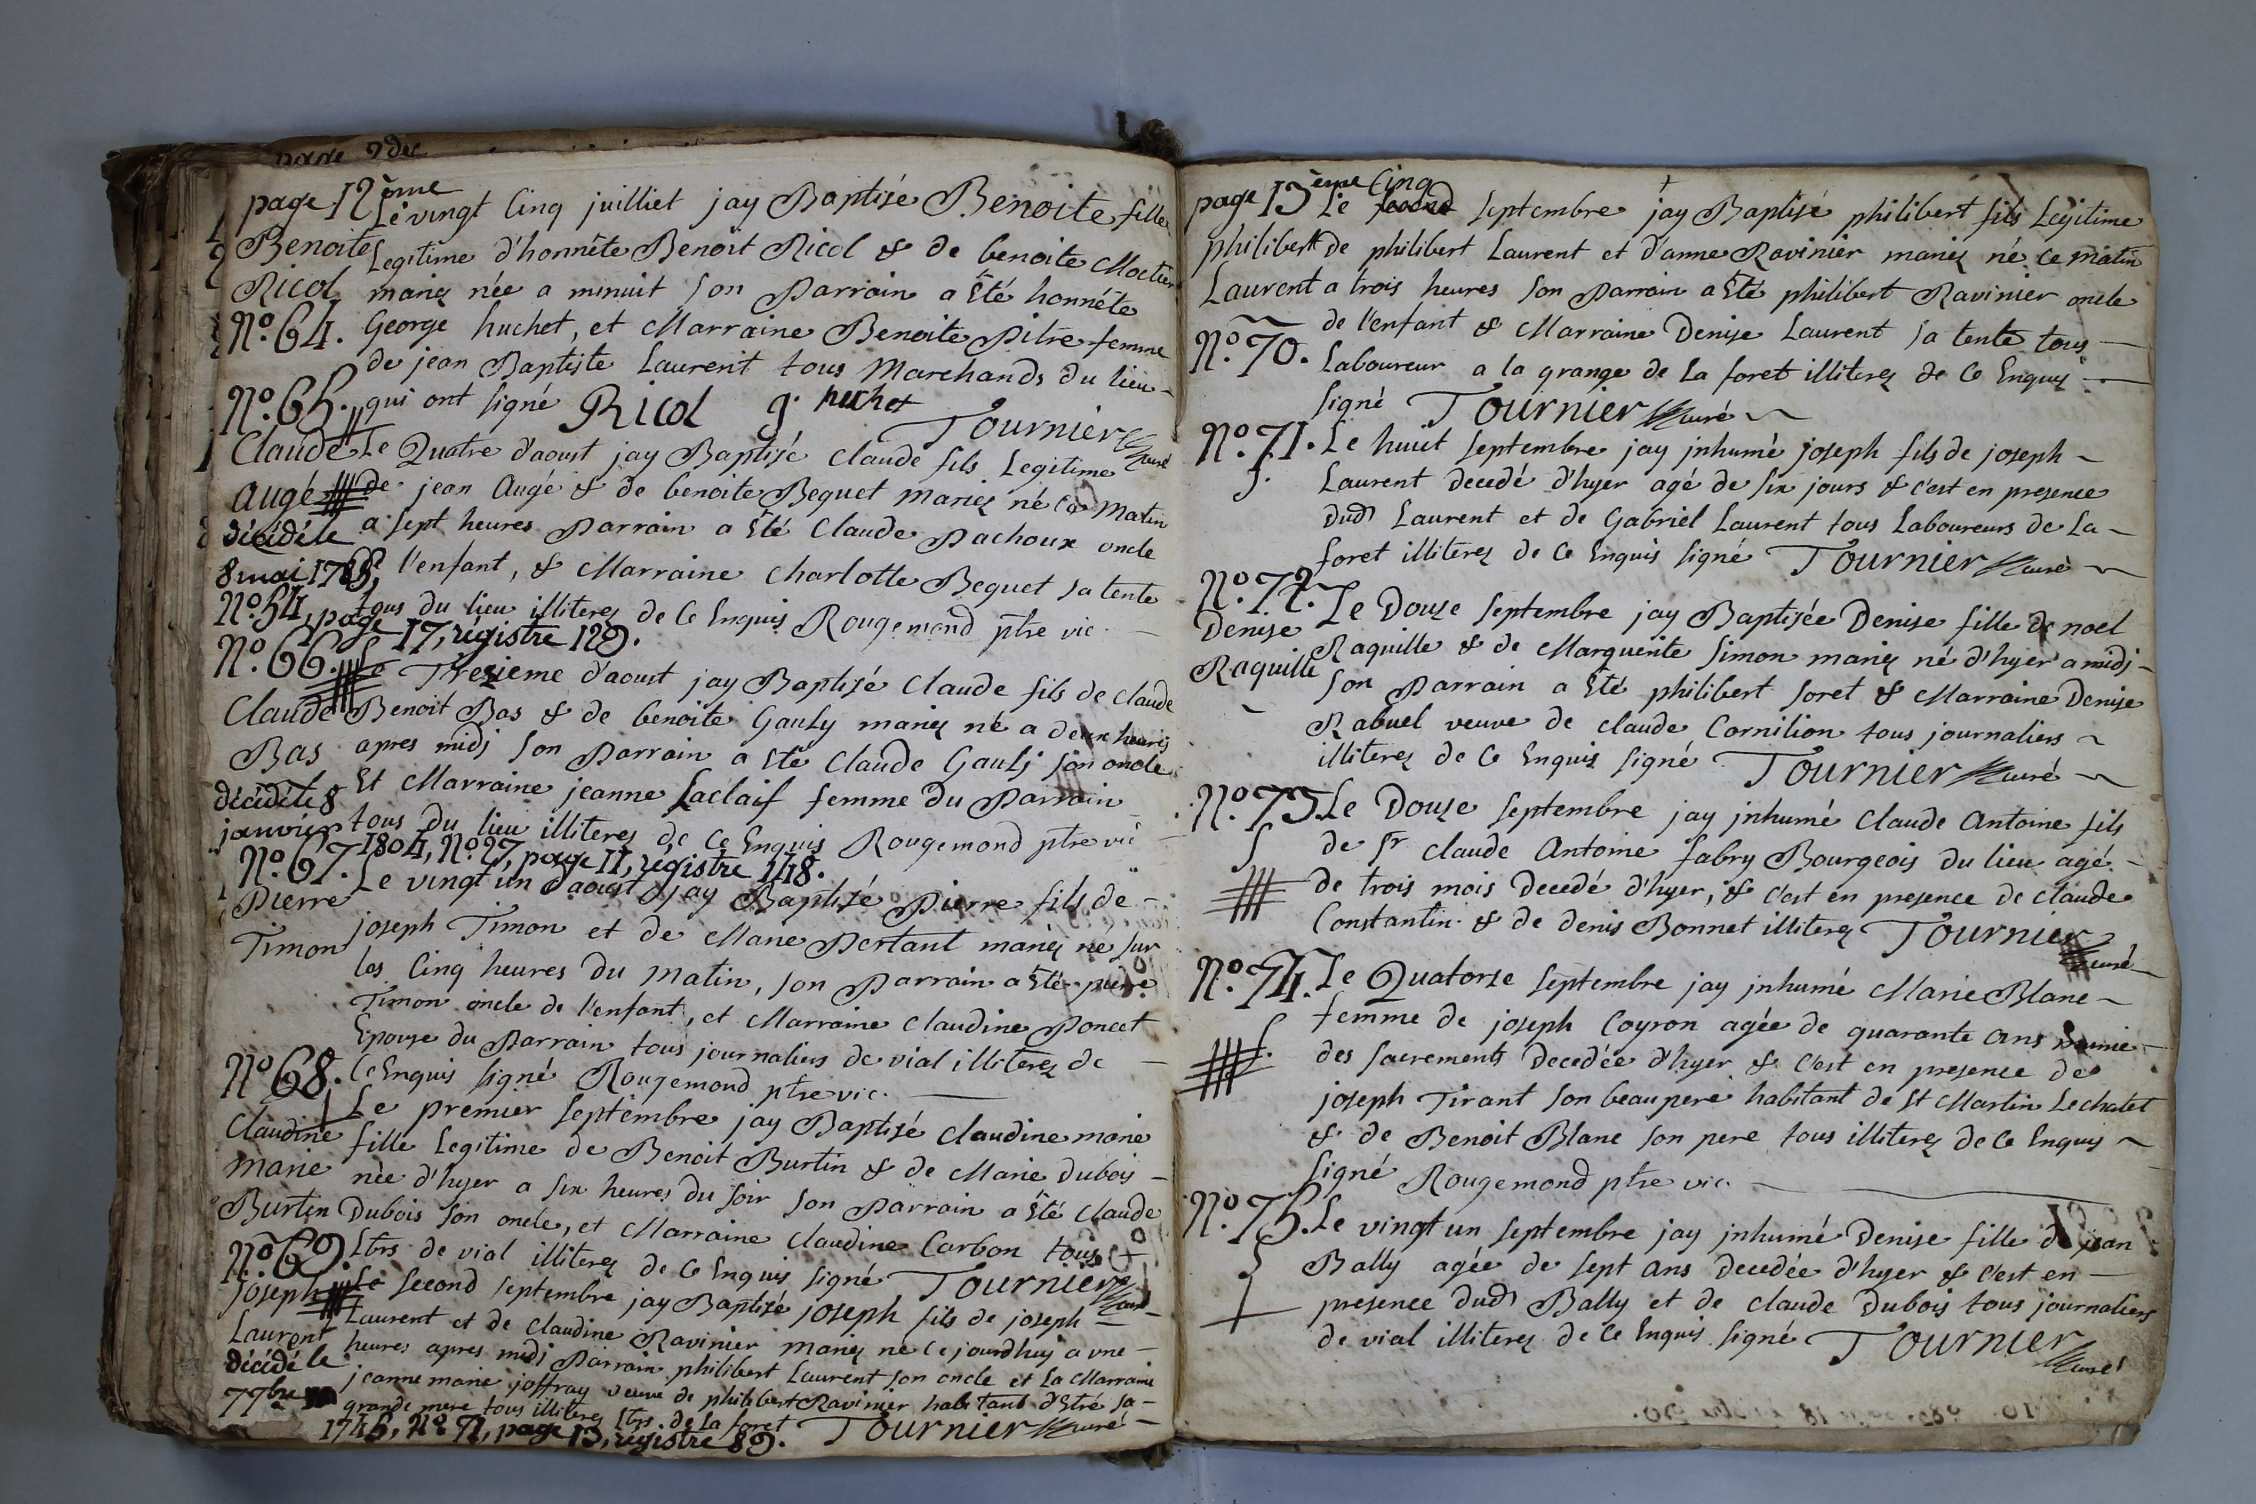 page 2de
page 12ème
Le vingt Cinq juilliet jay Baptisée Benoite fille
Benoite Legitime d'honnête Benoit Ricol & de benoite Moctier
Ricol mariez née a minuit son Parrain a Eté honnête
N.º 64. George huchet, et Marraine Benoite Pitre femme
de jean Baptiste Laurent tous Marchands du lieu
N.º 65. qui ont signé Ricol g. huchet
Tournier curé
Claude Le Quatre d'aoust jay Baptisé claude fils Legitime
Augé de jean Augé & de benoite Bequet mariez né ce Matin
décédé le a sept heures Parrain a Eté Claude Pachoux oncle
8 mai 1785, l'enfant, & Marraine Charlotte Bequet sa tente
N.º 54, page tous du lieu illiterez de Ce Enquis Rougemond ptre vic.
17, régistre 129.
N.º 66. Le Trezieme d'aoust jay Baptizé Claude fils de Claude
Claude Benoit Bas & de benoite Gauly mariez né a deux heures
Bas apres midj son Parrain a Eté Claude Gaulj son oncle
décédé le 8 Et Marraine jeanne Laclaif femme Du Parrain
janvier tous du lieu illiterez de Ce Enquis Rougemond ptre vic
1804, N.º 27, page 11, régistre 148.
N.º 67. Le vingt un d'aoust jay Baptizé Pierre fils de
Pierre
Timon joseph Timon et de Marie Pertant mariez né sur
les Cinq heures du matin, son Parrain a Eté pierre
Timon oncle de l'enfant, et Marraine Claudine Poncet
Epouze du Parrain tous journaliers de vial illiterez de
N.º 68. Ce Enquis signé Rougemond ptre vic.
Le premier septembre jay Baptizé Claudine marie
Claudine fille Legitime de Benoit Burtin & de Marie Dubois
Marie née d'hyer a six heures du soir son Parrain a Eté Claude
Burtin Dubois son oncle, et Marraine Claudine Carbon tous
N.º 69. Lbrs de vial illiterez de Ce Enquis signé Tournier curé
Joseph Le second septembre jay Baptizé joseph fils de joseph
Laurent Laurent et de Claudine Ravinier mariez né ce jourdhuj a vne
décédé le heures apres midj Parrain philibert Laurent son oncle et La Marraine
7 7bre jeanne marie joffray veuve de philibert Ravinier habitant d'Etré sa
grande mere tous illiterez Lbrs. de La foret Tournier curé
1745, N.º 71, page 13, régistre 89.
page 13ème Cinq
Le second septembre jay Baptisé philibert fils Legitime
philibert de philibert Laurent et d'anne Ravinier mariez né ce matin
Laurent a trois heures son Parrain a Eté philibert Ravinier oncle
N.º 70. de l'enfant & Marraine Denise Laurent sa tente tous
Laboureur a la grange de La foret illiterez de Ce Enquez
signé Tournier curé
N.º 71. Le huit septembre jay jnhumé joseph fils de joseph
Laurent decedé d'hyer agé de six jours & c'est en presence
dud Laurent et de Gabriel Laurent tous Laboureurs de La
foret illiterez de Ce Enquis signé Tournier curé
N.º 72. Le Douze septembre jay Baptizée Denise fille de noel
Denise
Raquille Raquille & de Marguerite Simon mariez né d'hyer a midj
son Parrain a Eté philibert soret & Marraine Denise
Rabuel veuve de claude Cornilion tous journaliers
illiterez de Ce Enquis signé Tournier curé
N.º 73. Le Douze septembre jay jnhumé Claude Antoine fils
de sr claude Antoine fabry Bourgeois du lieu agé
de trois mois Decedé d'hyer, & c'est en presence de claude
Constantin & de denis Bonnet illiterez Tournier curé
N.º 74. Le Quatorze septembre jay jnhumé Marie Blanc
femme de joseph Coyron agée de quarante ans Munie
des sacrements Decedée d'hyer & C'est en presence de
joseph Tirant son beau pere habitant de St Martin Lechatel
& de Benoit Blanc son pere tous illiterez de Ce Enquis
signé Rougemond ptre vic.
N.º 75. Le vingt un septembre jay jnhumé Denise fille de jean
Bally agée de sept ans Decedée d'hyer & c'est en
presence dud Bally et de claude Dubois tous journaliers
de vial illiterez de Ce Enquis signé Tournier curé